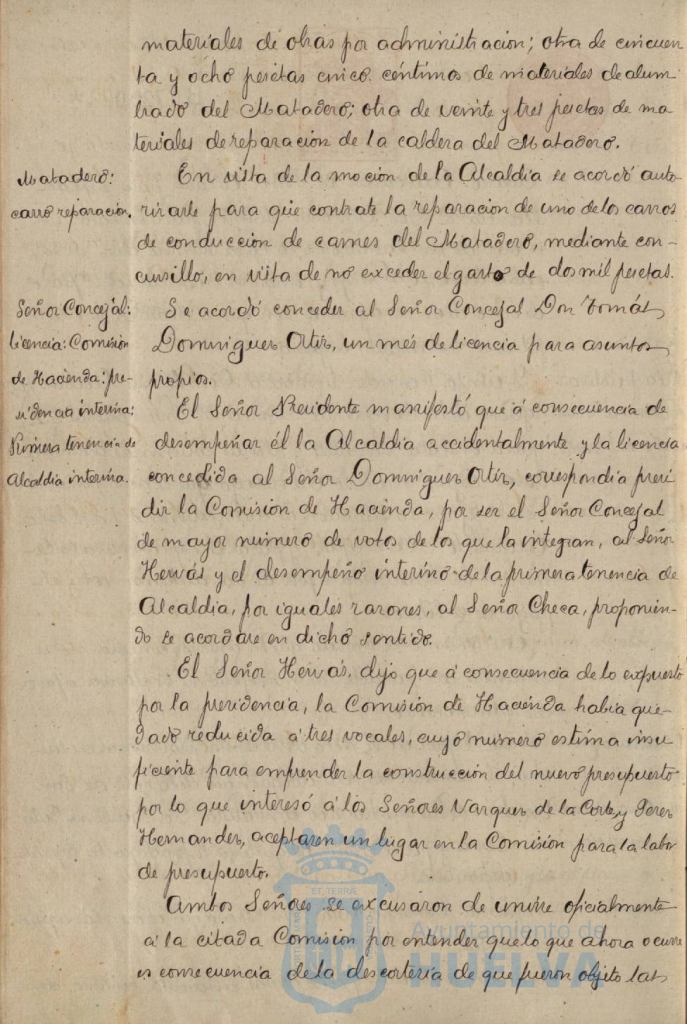 materiales de obras por administración; otra de cincuen
ta y ocho pesetas cinco céntimos de materiales de alum
brado del Matadero; otra de veinte y tres pesetas de ma
teriales de reparación de la caldera del Matadero.
Matadero:
carro reparación.
En vista de la moción de la Alcaldía se acordó auto-
rizarle para que contrate la reparación de uno de los carros
de conducción de carnes del Matadero, mediante con-
cursillo, en vista de no exceder el gasto de dos mil pesetas.
Señor Concejal:
licencia: Comisión
de Hacienda: pre-
sidencia interina:
Primera tenencia de
Alcaldía interina.
Se acordó conceder al Señor Concejal Don Tomás
Dominguez Ortiz, un mes de licencia para asuntos
propios.
El Señor Presidente manifestó que á consecuencia de
desempeñar él la Alcaldía accidentalmente y la licencia
concedida al Señor Dominguez Ortiz, correspondía presi
dir la Comisión de Hacienda, por ser el Señor Concejal
de mayor número de votos de los que la integran, al Señor
Hervás y el desempeño interino de la primera tenencia de
Alcaldía, por iguales razones, al Señor Checa, proponien-
do se acordase en dicho sentido.
El Señor Hervás, dijo que á consecuencia de lo expuesto
por la presidencia, la Comisión de Hacienda había que-
dado reducida á tres vocales, cuyo número estima insu
ficiente para emprender la construcción del nuevo presupuesto
por lo que interesó á los Señores Vazquez de la Corte y Perez
Hernandez, aceptasen un lugar en la Comisión para la labor
de presupuesto.
Ambos Señores se excusaron de unirse oficialmente
á la citada Comisión por entender que lo que ahora ocurre
es consecuencia de la descortesía de que fueron objeto las
ET TERRAE
Ayuntamiento de
HUELVA